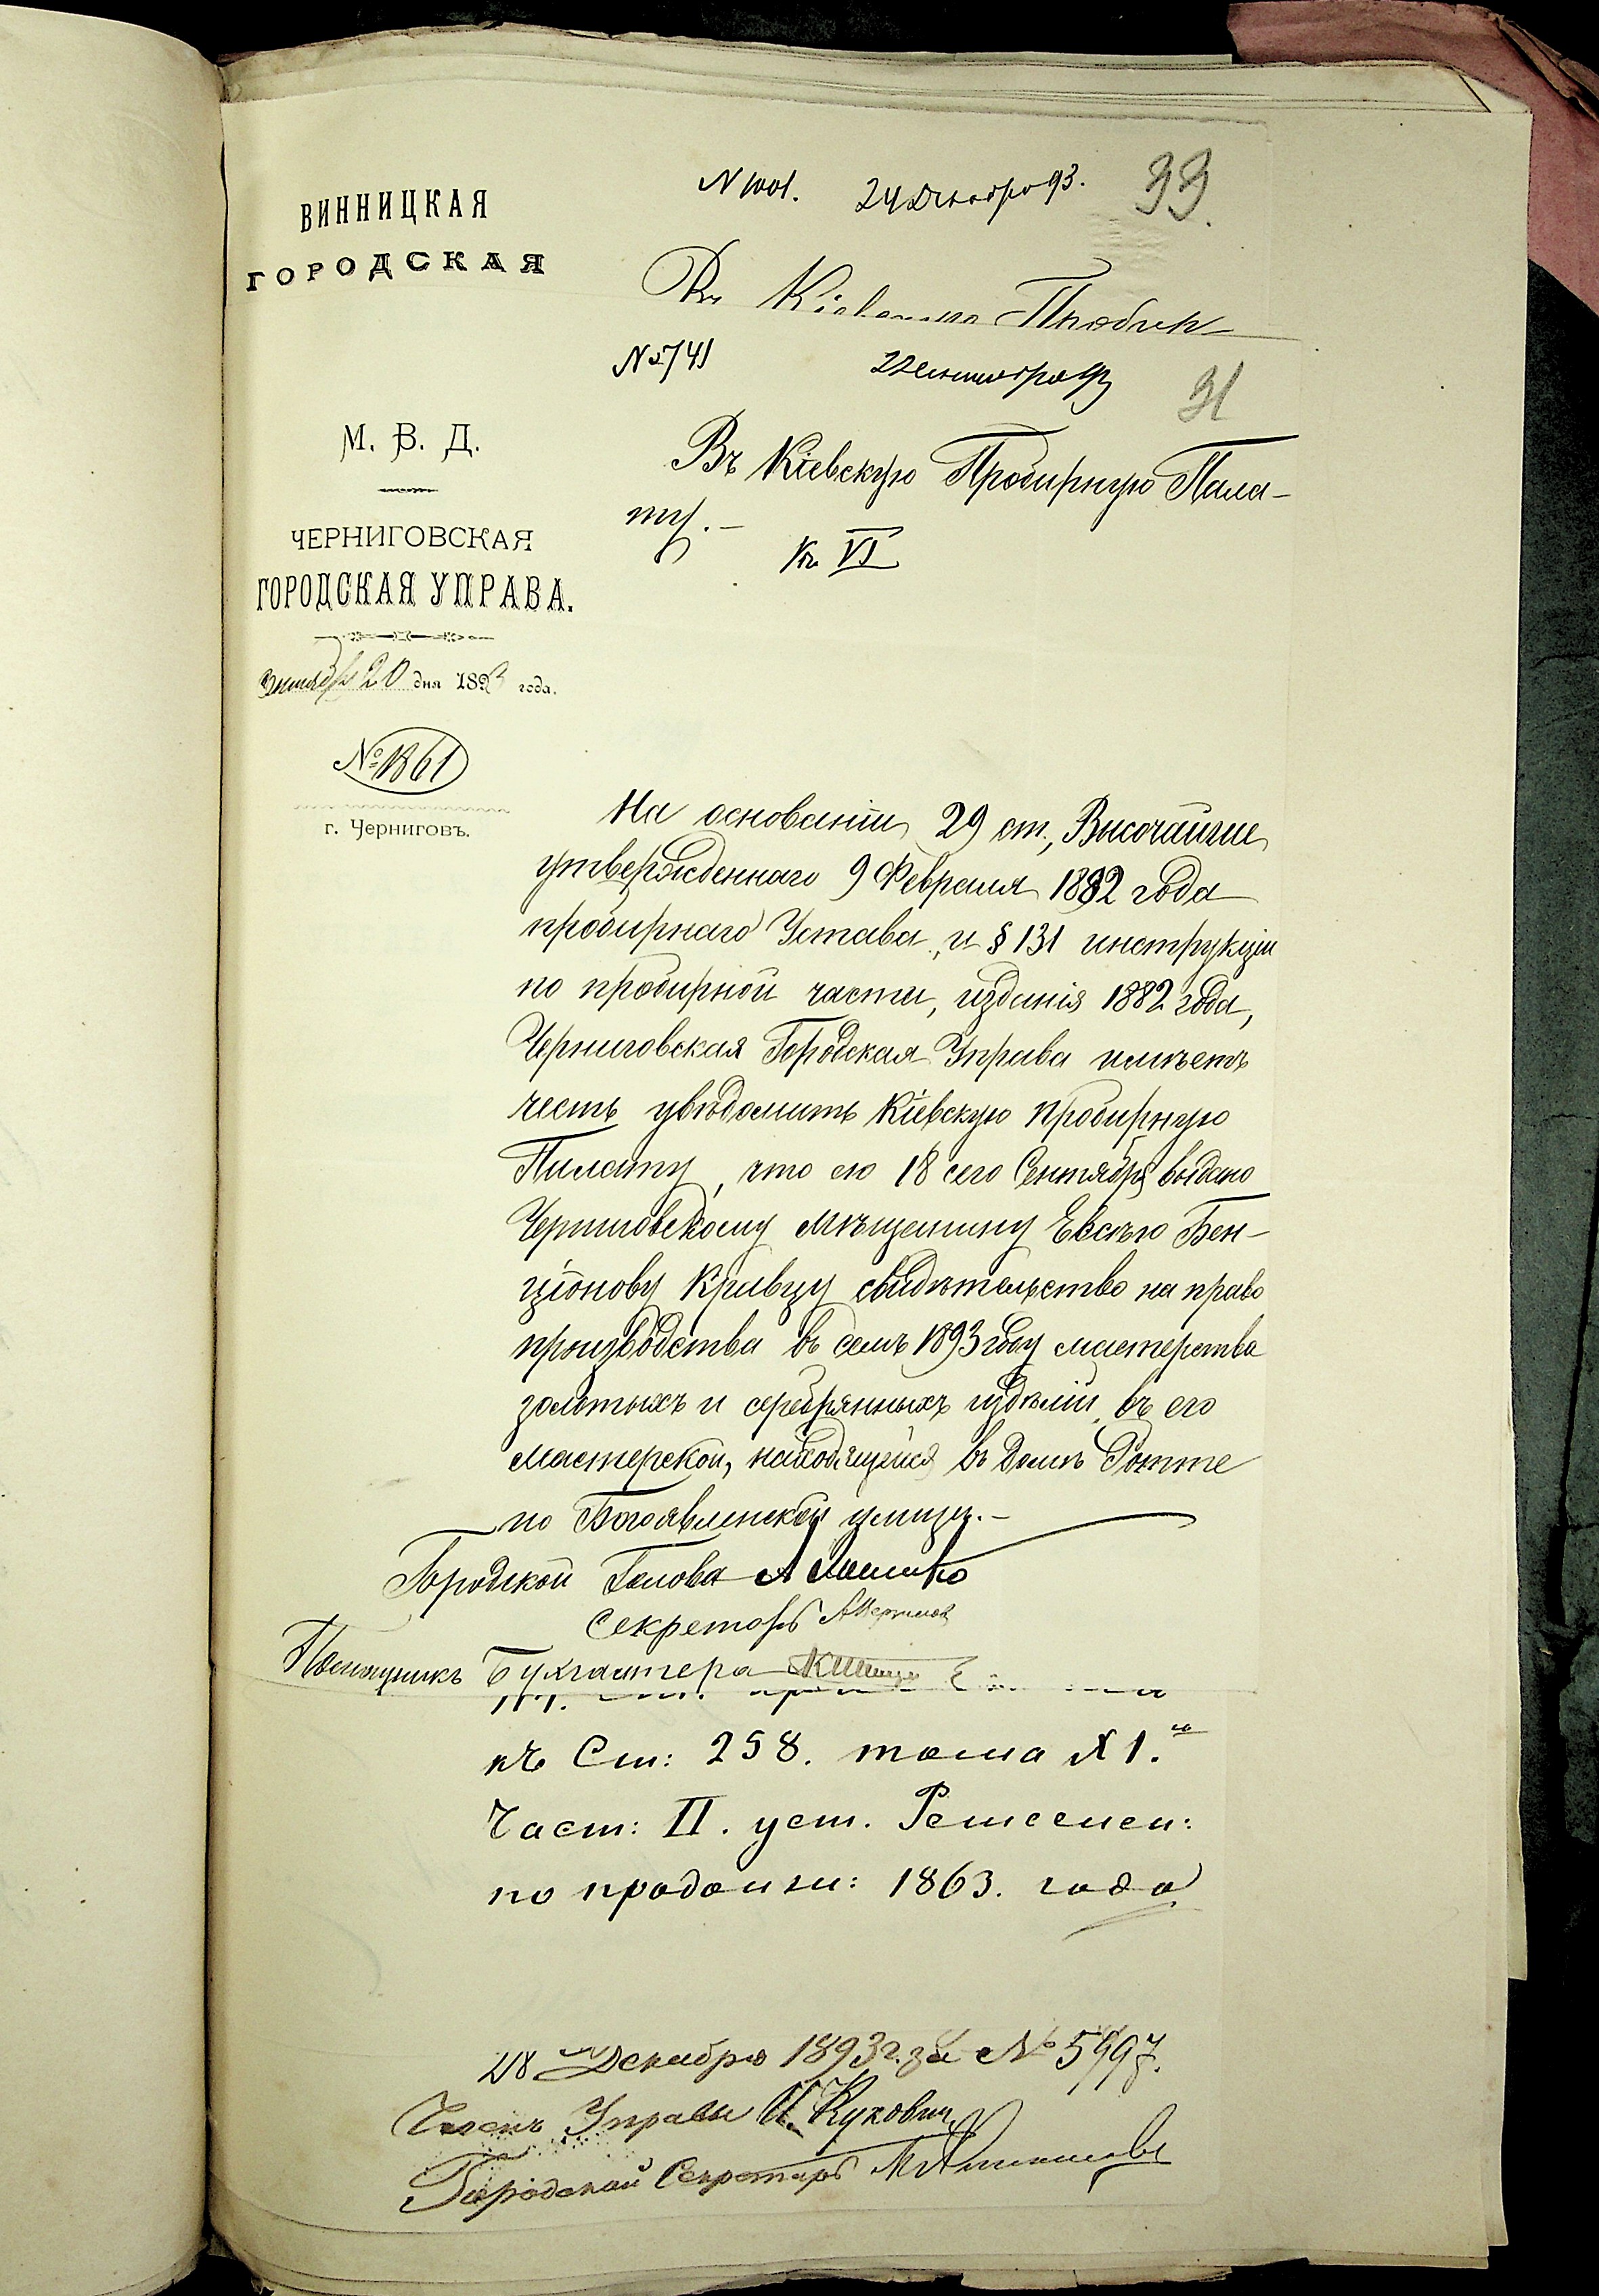 ВИННИЦКАЯ
ГОРОДСКАЯ
N 1001. 24 Декабря 93. 33.
Въ Кіевскую Пробир
М. В. Д.
ЧЕРНИГОВСКАЯ
ГОРОДСКАЯ УПРАВА.
Сентября 20 дня 1893 года.
№ 1861
г. Черниговъ.
N 2741 22 сентября 93 31
Въ Кіевскую Пробирную Пала-
ту.–
Къ VI
На основаніи 29 ст., Высочайше
утвержденнаго 9 Февраля 1882 года
пробирнаго Устава, и § 131 инструкціи
по пробирной части, изданія 1882 года,
Черниговская Городская Управа имѣетъ
честь увѣдомить Кіевскую пробирную
Палату, что ею 18 сего Сентября выдано
Черниговскому мѣщанину Евсѣю Бен-
ціонову Кривцу свидѣтельство на право
производства въ семъ 1893 году мастерства
золотыхъ и серебрянныхъ издѣлій, въ его
мастерской, находящейся въ домѣ Ротте
по Богоявленской улицѣ.–
Городской Голова А
Секретарь
Помощникъ Бухгалтера
къ Ст: 258. тома XI.го
Част: II. уст. Ремеслен:
по продолж: 1863. года
28 Декабря 1893 г. за № 5997.
Членъ Управы И. Кукович
Городской Секретарь